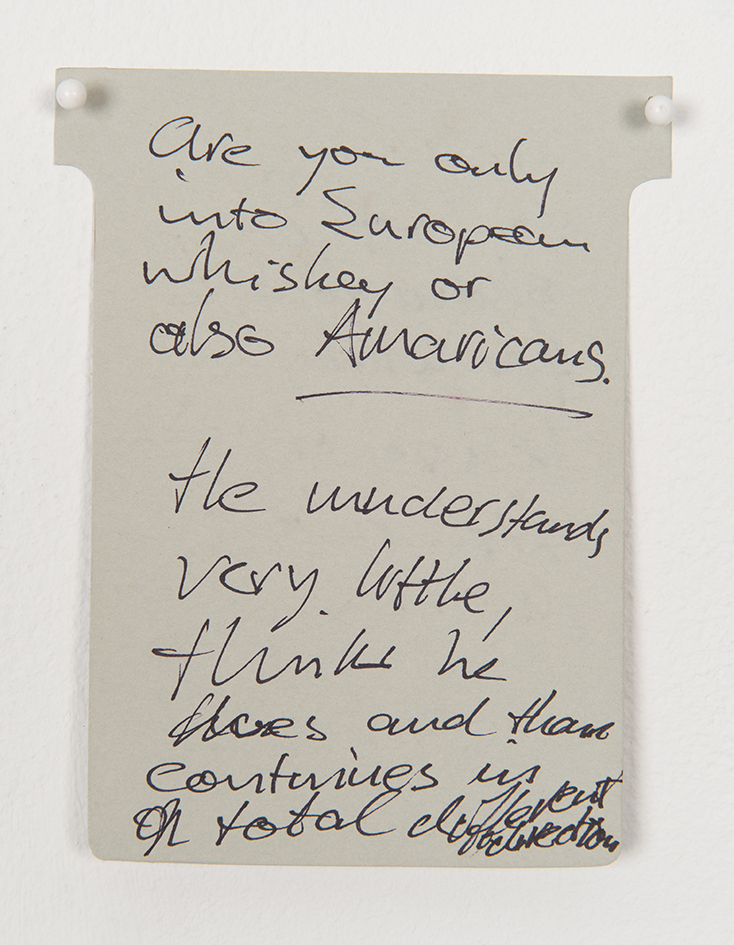 Are you only
into European
whiskey or
also Amaricans.
He understands
very little,
thinks he
does and than
continues in
a total different
direction